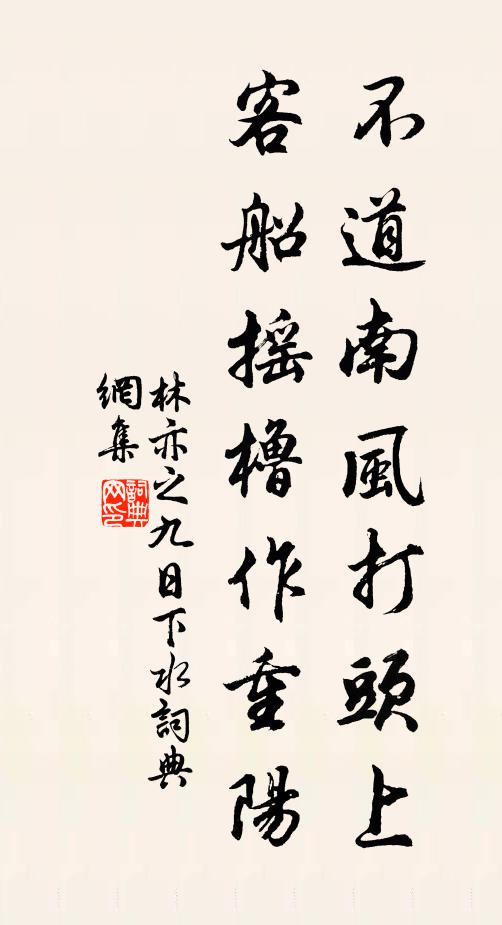 不道南風打頭上
客船摇櫓作重陽
林亦之九日下水詞典
網集
詞典網印